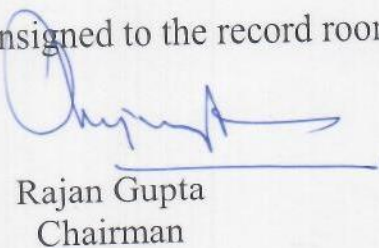 nsigned to the record room
Rajan Gupta
Chairman